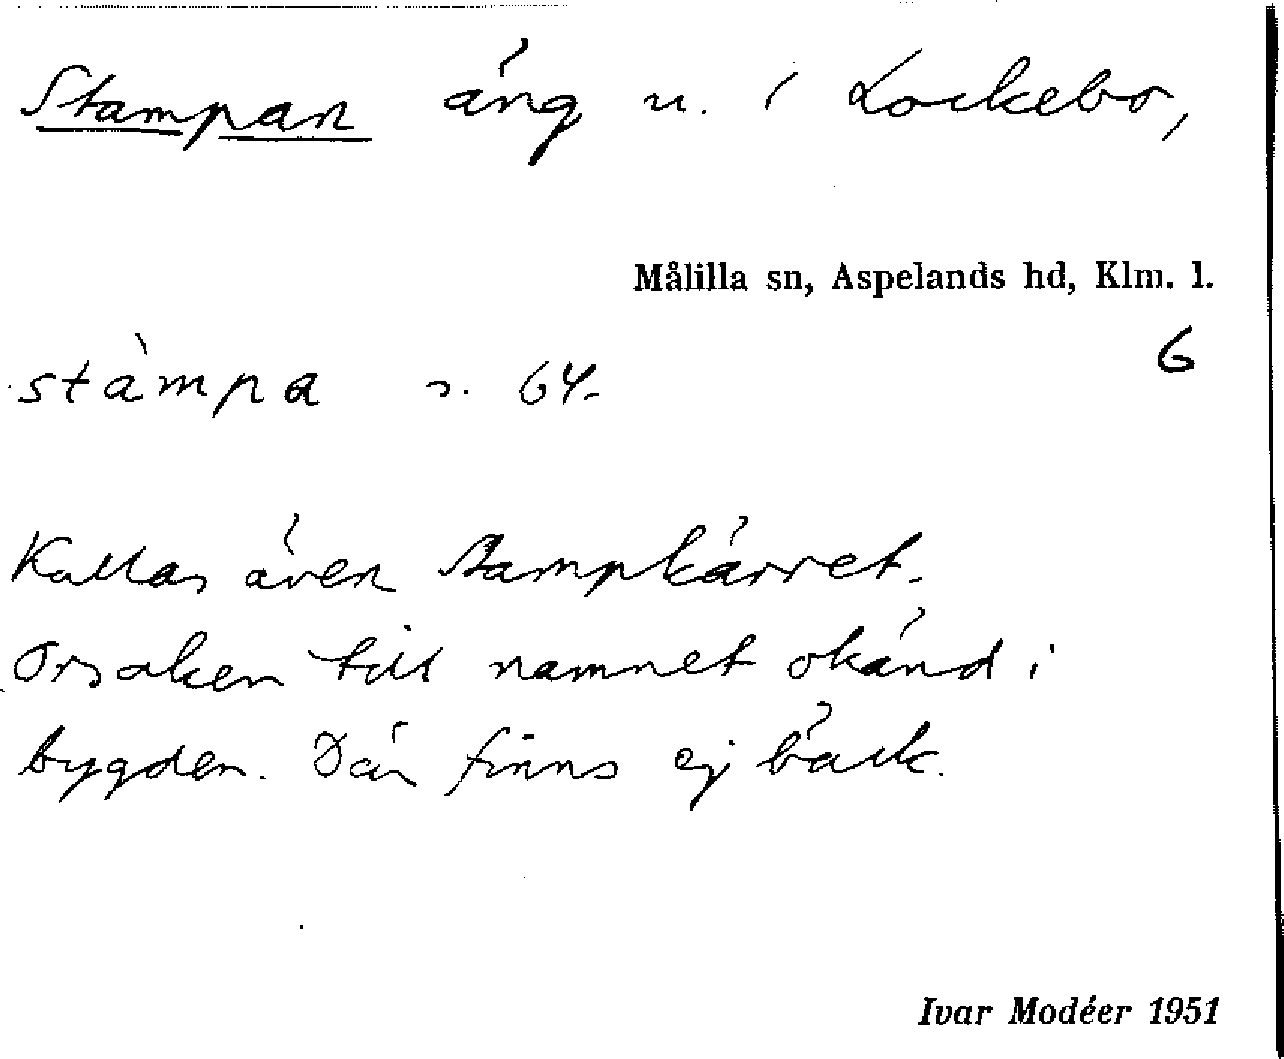 Stampan äng u. i Lockebo,
Målilla sn, Aspelands hd, Klm. l.
6
stàmpa s. 64.
Kallas även Stampkärret.
Orsaken till namnet okänd i
bygden. Där finns ej bäck.
Ivar Modéer 1951